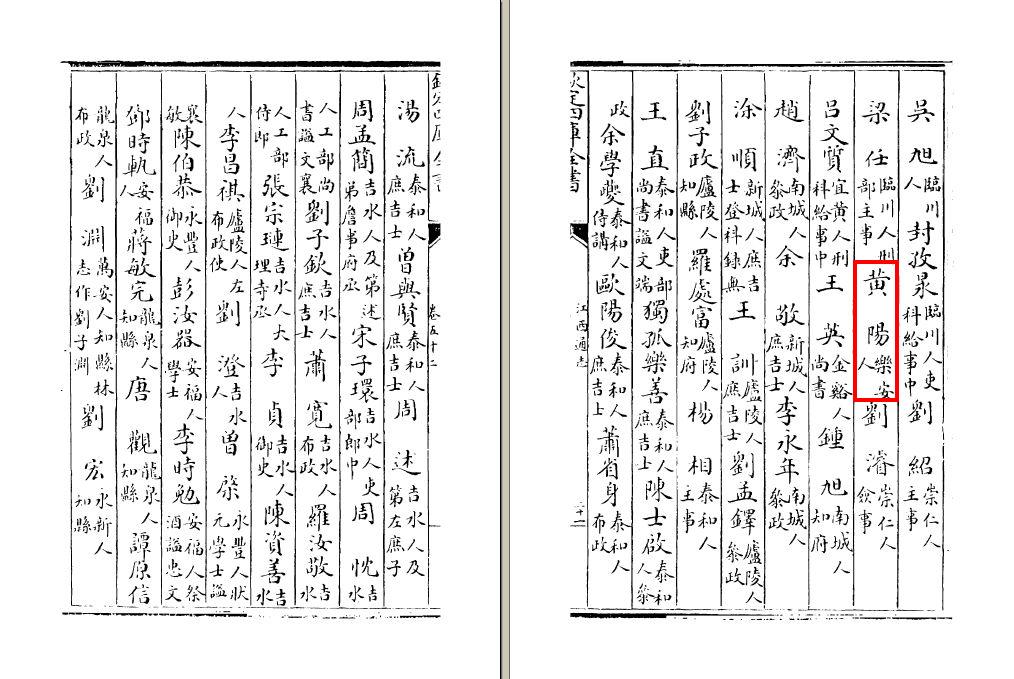 吳旭臨川人 封孜臨川人吏科給事中 劉紹崇仁人主事
梁任臨川人刑部主事 黄陽樂安人 劉濬崇仁人僉事
呂文質宜黄人刑科給事中 王英金谿人尚書 鍾旭南城人知府
趙濟南城人叅政 余敬新城人庶吉士 李永年南城人叅政
涂順新城人庶吉士登科録無 王訓廬陵人庶吉士 劉孟鐸廬陵人叅政
劉子政廬陵人知縣 羅處富廬陵人知府 楊相泰和人主事
王直泰和人吏部尚書諡文端 獨孤樂善泰和人庶吉士 陳士啟泰和人叅
政 余學夔泰和人侍講 歐陽俊泰和人庶吉士 蕭省身泰和人布政
欽定四庫全書 江西通志 三十一
欽定四庫全書 卷五十二
湯流泰和人庶吉士 曽與賢泰和人庶吉士 周述吉水人及第左庶子
周孟簡吉水人及第述弟詹事府丞 宋子環吉水人吏部郎中 周忱吉水
人工部尚書諡文襄 劉子欽吉水人庶吉士 蕭寬吉水人布政 羅汝敬吉水
人工部侍郎 張宗璉吉水人大理寺丞 李貞吉水人御史 陳資善吉水
人 李昌祺廬陵人左布政使 劉澄吉水人 曽棨永豐人狀元學士諡
襄敏 陳伯恭永豐人御史 彭汝器安福人學士 李時勉安福人祭酒諡忠文
鄧時軌安福人 蔣敏完龍泉人知縣 唐觀龍泉人知縣 譚原信
龍泉人布政 劉淵萬安人知縣林志作劉子淵 劉宏永新人知縣